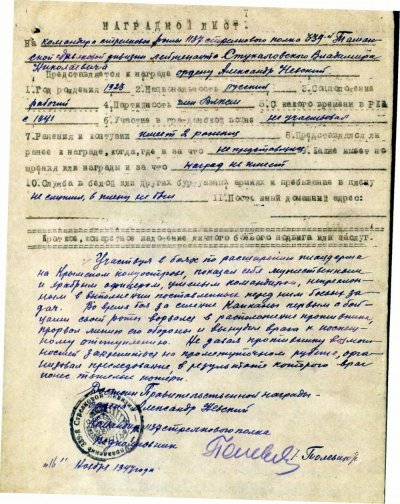 НАГРАДНОЙ ЛИСТ.
На командира стрелковой роты 1137 стрелкового полка 339-й Таман-
ской стрелковой дивизии лейтенанта Стукаловского Владимира
Николаевича
Представляется к награде ордену Александр Невский
1. Год рождения 1923 2. Национальность русский 3. Соцположение
рабочий 4. Партийность член 5. С какого времени в РККА
с 1941 6. Участие в гражданской войне не участвовал
7. Ранения и контузии имеет 2 ранения 8. Представлялся ли
ранее к награде, когда, где и за что не представлялся 9. Какие имеет по-
ощрения или награды и за что наград не имеет
10. Служба в белой или других буржуазных армиях и пребывание в плену
не служил, в плену не был 11. Постоянный домашний адрес:
Краткое, конкретное изложение личного боевого подвига или заслуг.
Участвуя в боях по расширению плацдарма
на Крымском полуострове, показал себя мужественным
и храбрым офицером, умелым командиром,
в выполнении поставленных перед ним боевых за-
дач. Во время боя за первым с бой-
цами своей роты ворвался в расположение противника,
прорвал линию его обороны и вынудил врага к
отступлению. Не давая противнику возмож-
ностей закрепиться на промежуточном рубеже, орга-
низовал преследование, в результате которого враг
понес тяжелые потери.
Достоин Правительственной награды-
Александр Невский
Командир 1137 стрелкового полка
подполковник
"16" Ноября 1943 года